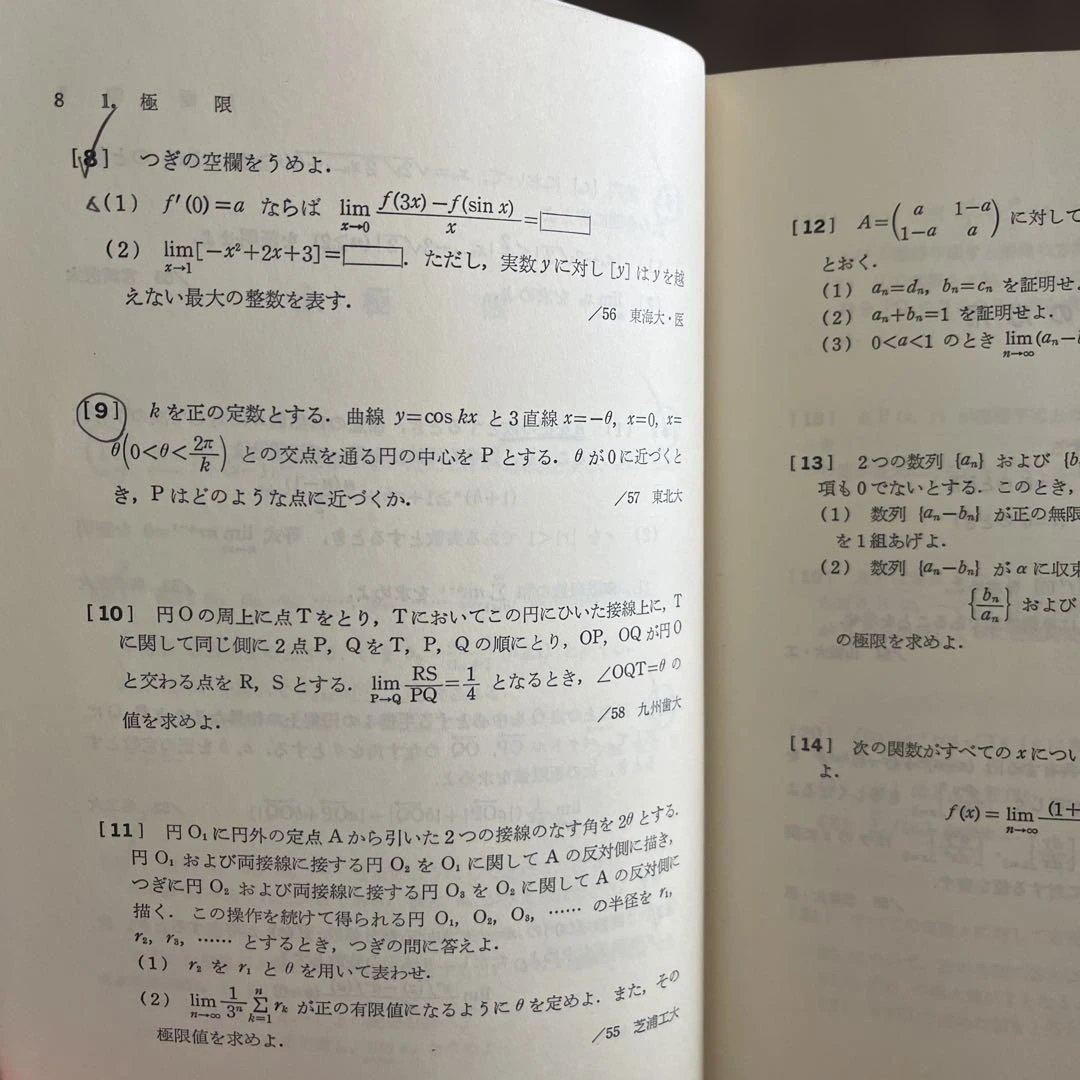 8 1. 極 限
[8] つぎの空欄をうめよ.
(1) f′(0)=a ならば lim_{x→0} (f(3x)−f(sin x))/x=□
(2) lim_{x→1}[−x²+2x+3]=□. ただし, 実数yに対し[y]はyを越
えない最大の整数を表す.
/56 東海大・医
[9] kを正の定数とする. 曲線 y=cos kx と3直線 x=−θ, x=0, x=
θ(0<θ<2π/k) との交点を通る円の中心をPとする. θが0に近づくと
き, Pはどのような点に近づくか.
/57 東北大
[10] 円Oの周上に点Tをとり, Tにおいてこの円にひいた接線上に, T
に関して同じ側に2点P, QをT, P, Qの順にとり, OP, OQが円O
と交わる点をR, Sとする. lim_{P→Q} RS/PQ=1/4 となるとき, ∠OQT=θの
値を求めよ.
/58 九州歯大
[11] 円O₁に円外の定点Aから引いた2つの接線のなす角を2θとする.
円O₁および両接線に接する円O₂をO₁に関してAの反対側に描き,
つぎに円O₂および両接線に接する円O₃をO₂に関してAの反対側に
描く. この操作を続けて得られる円O₁, O₂, O₃, …… の半径をr₁,
r₂, r₃, …… とするとき, つぎの問に答えよ.
(1) r₂をr₁とθを用いて表わせ.
(2) lim_{n→∞} 1/3ⁿ Σ_{k=1}^{n} r_k が正の有限値になるようにθを定めよ. また, その
極限値を求めよ.
/55 芝浦工大
[12] A=(a 1−a; 1−a a) に対して
とおく.
(1) aₙ=dₙ, bₙ=cₙ を証明せよ.
(2) aₙ+bₙ=1 を証明せよ.
(3) 0<a<1 のとき lim_{n→∞}(aₙ−b
[13] 2つの数列 {aₙ} および {b
項も0でないとする. このとき,
(1) 数列 {aₙ−bₙ} が正の無限
を1組あげよ.
(2) 数列 {aₙ−bₙ} がαに収束
{bₙ/aₙ} および
の極限を求めよ.
[14] 次の関数がすべてのxについ
よ.
f(x)=lim_{n→∞} (1+